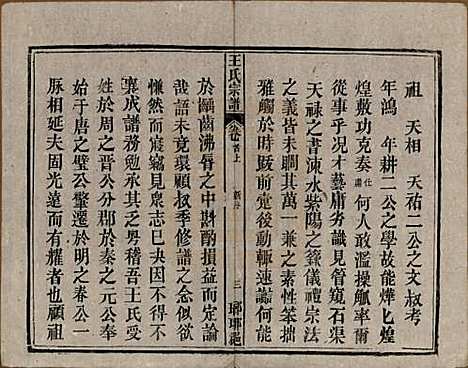 祖　天相　天祐二公之文叔考
年鴻　年耕二公之學故能燁匕煌
煌敷功克奏　仕肅　何人敢濫操觚率爾
從事乎紹才必藝庸劣識見管窺石渠
天祿之書涑水紫陽之儀禮宗法
之義皆未嘗其萬一兼之素性笨拙
雅觸於時跋前疐後動輒速謗何
於齲齒沸脣之中斟酌損益而定論
諸語未竟環顧叔季修譜之念似欲
慊然而大寢竊見衆志已決因不得不
襄成譜務勉承其粤稽吾王氏受
姓於周之晉公分郡於秦之元公奉
始於唐之璧公肇遷於明之春公一
脈相延夫固光遠而有耀者也顧祖
王氏宗譜
卷首上
三
瑯琊